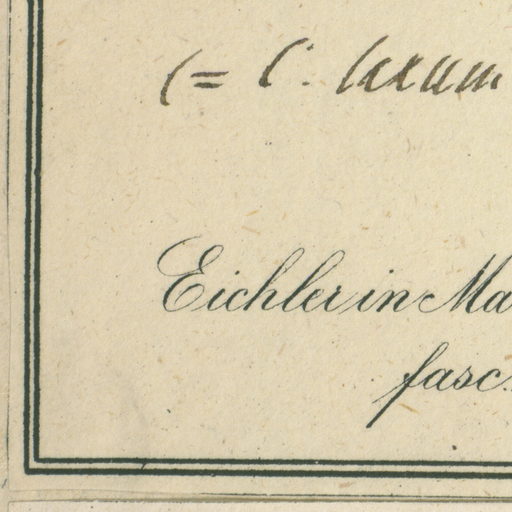 (= C. laxum
Eichler in Ma
fasc.